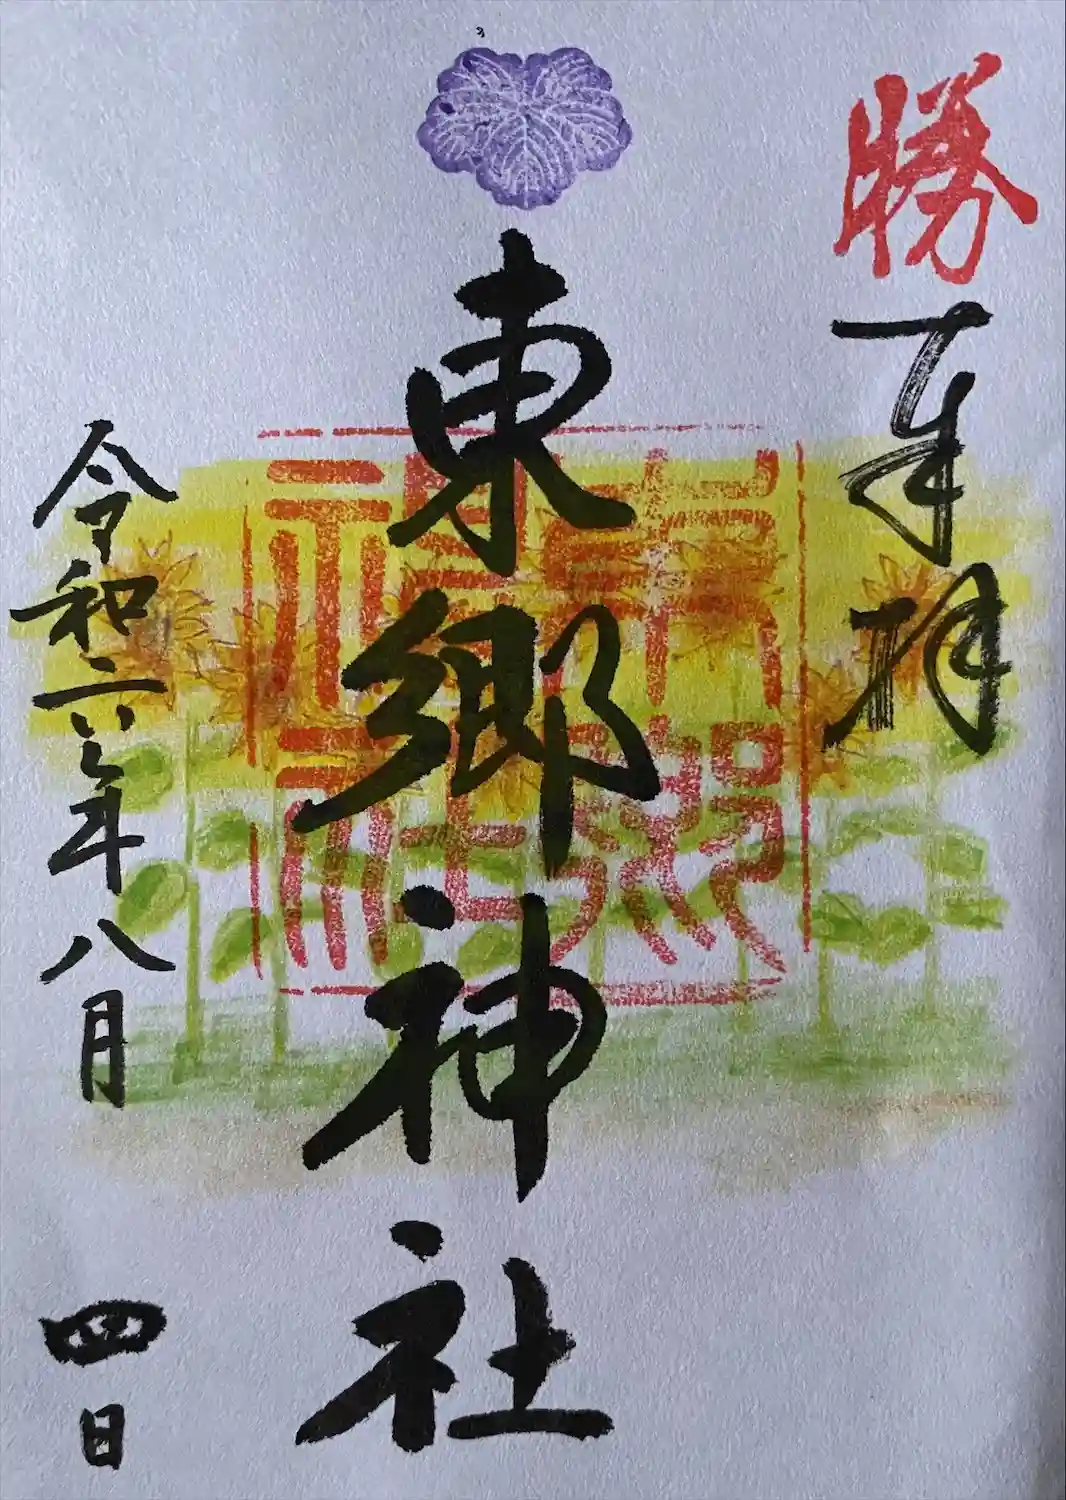 勝
奉拝
東郷神社
東郷神社
令和六年八月四日